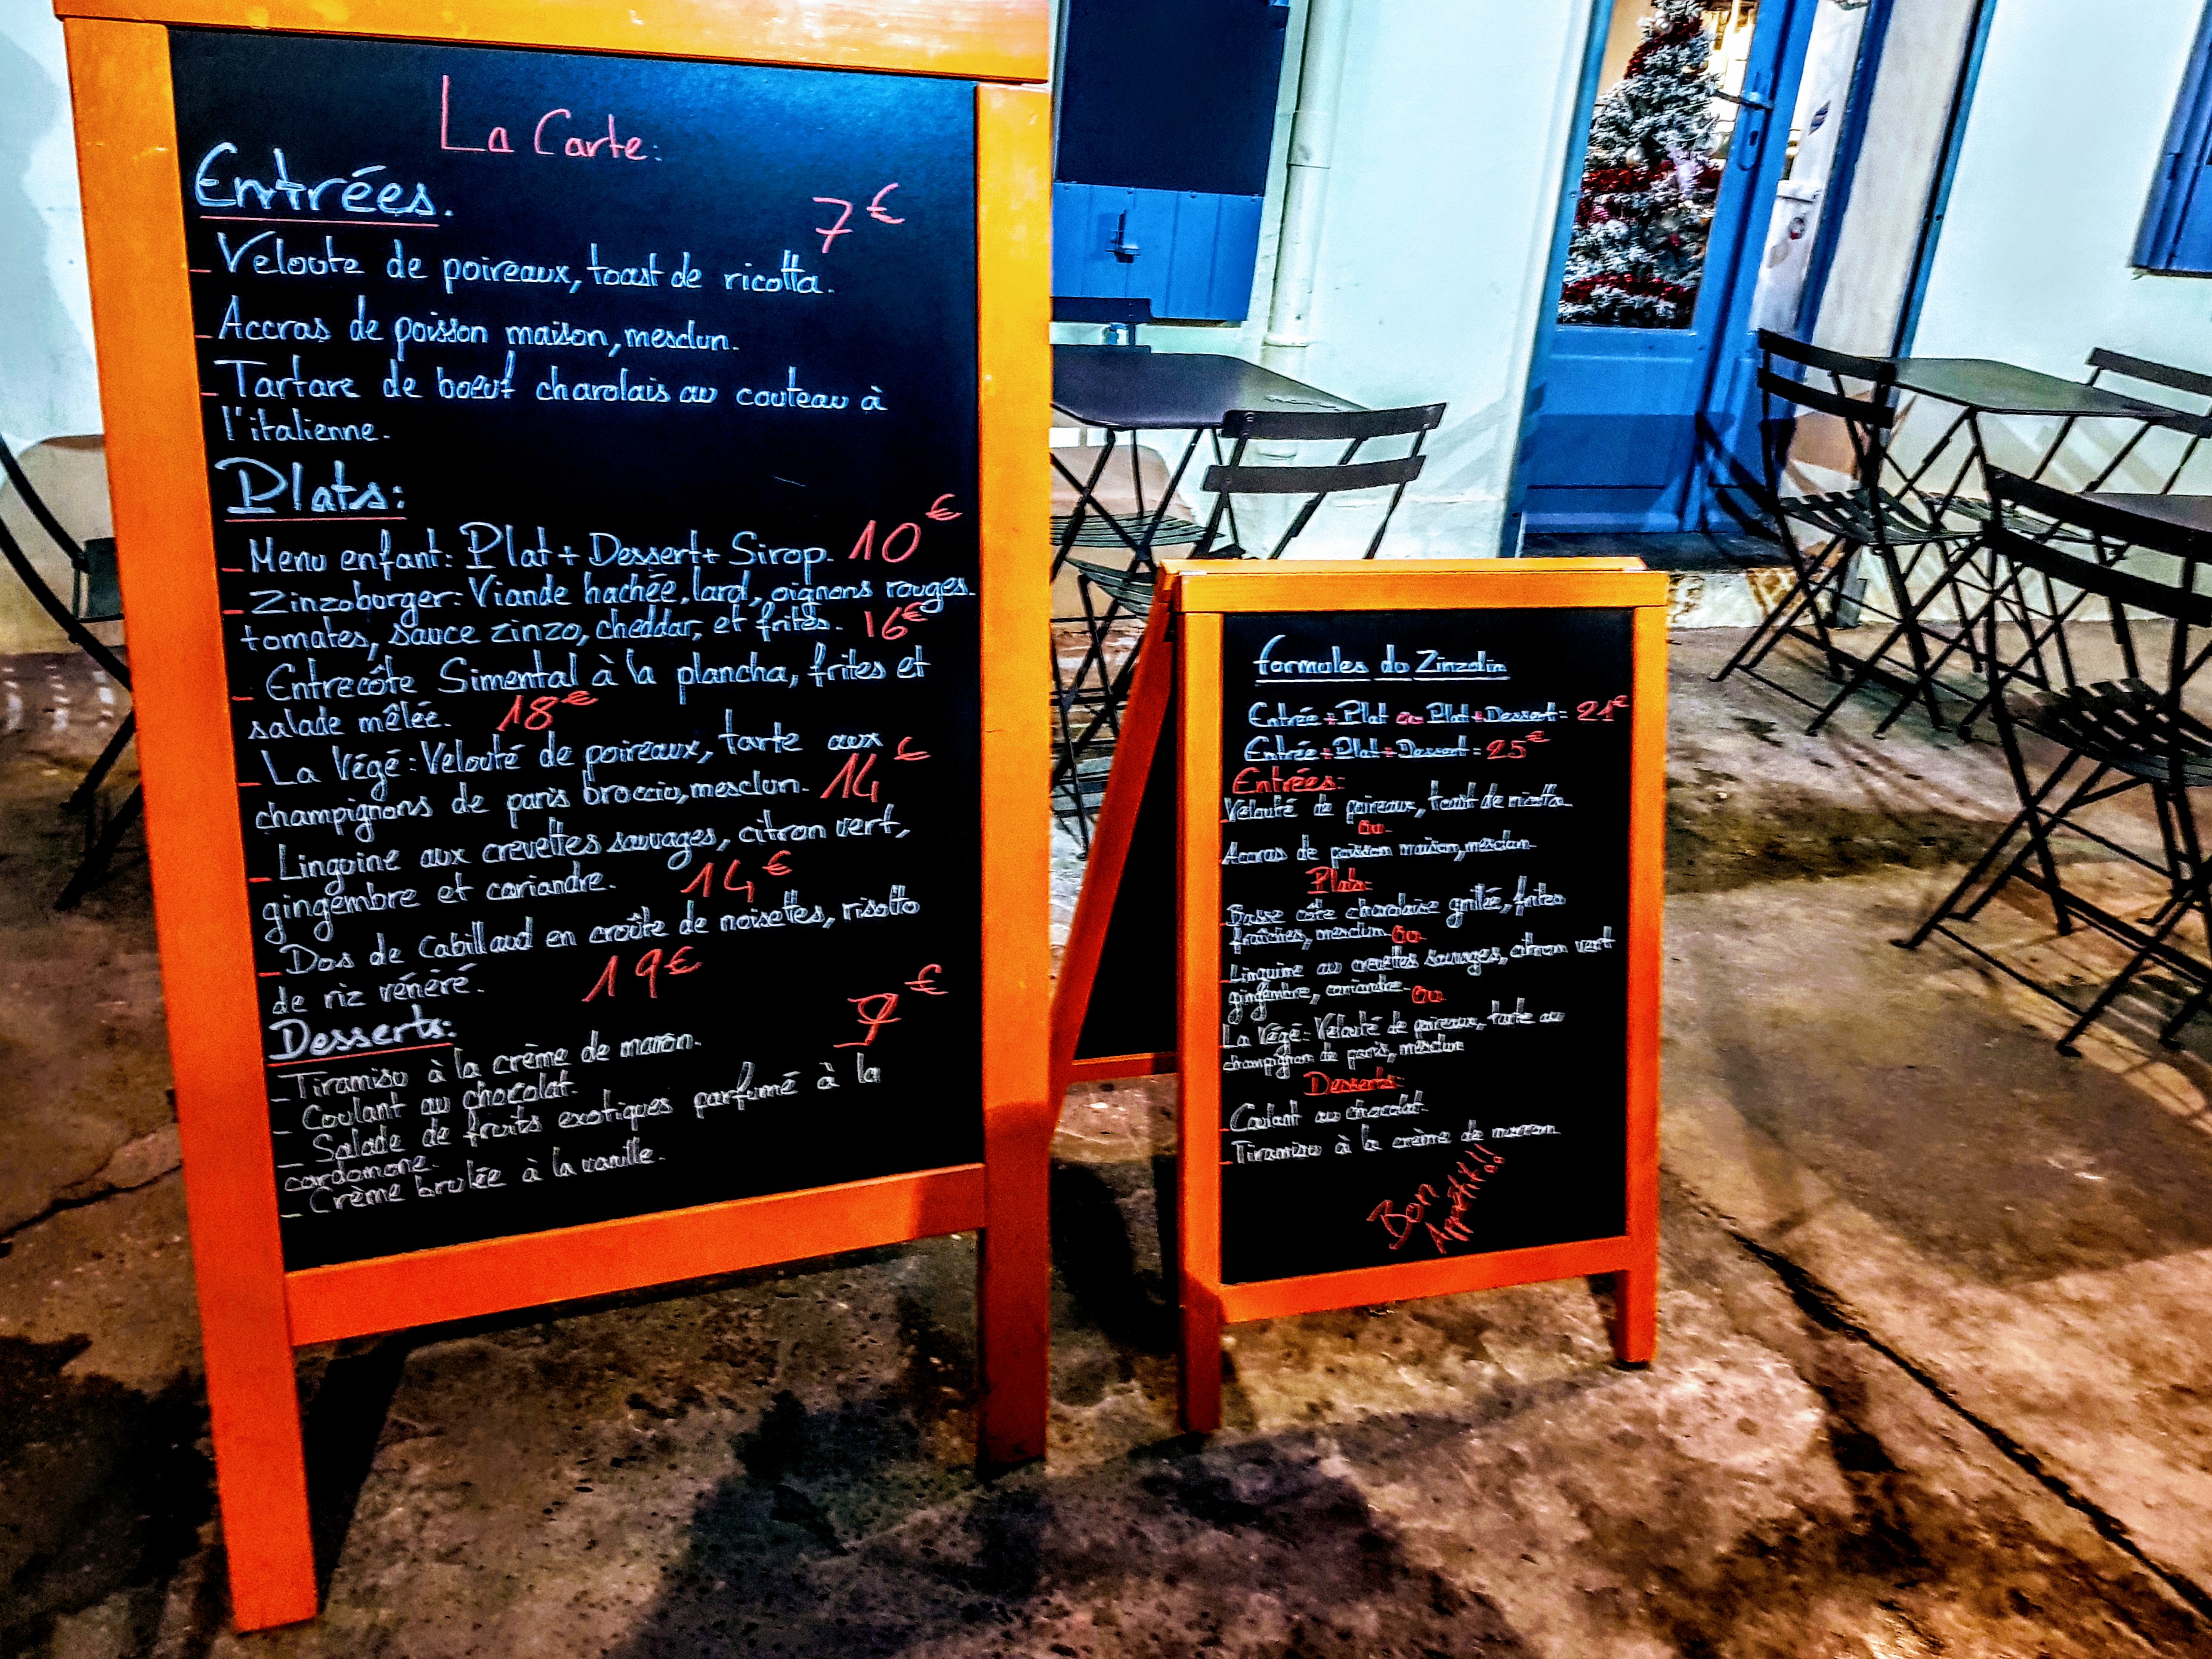 La Carte:
Entrées.
7€
_ Veloute de poireaux, toast de ricotta.
_ Accras de poisson maison, mesclun.
_ Tartare de boeuf charolais au couteau à
l'italienne.
Plats:
_ Menu enfant: Plat + Dessert + Sirop. 10€
_ Zinzoburger: Viande hachée, lard, oignons rouges.
tomates, sauce zinzo, cheddar, et frites. 16€
_ Entrecôte Simental à la plancha, frites et
salade mêlée. 18€
_ La Végé: Velouté de poireaux, tarte aux
champignons de paris broccio, mesclun. 14€
_ Linguine aux crevettes sauvages, citron vert,
gingembre et coriandre. 14€
_ Dos de Cabillaud en croûte de noisettes, risotto
de riz vénéré. 19€
Desserts: 7€
_ Tiramisu à la crème de maron.
_ Coulant au chocolat.
_ Salade de fruits exotiques parfumé à la
cardomone.
_ Crème brulée à la vanille.
formules du Zinzolin
Entrée + Plat ou Plat + Dessert = 21€
Entrée + Plat + Dessert = 25€
Entrées:
_ Velouté de poireaux, toast de ricotta
ou
_ Accras de poisson maison, mesclun
Plats:
_ Basse côte charolaise grillée, frites
fraîches, mesclun ou
_ Linguine au crevettes sauvages, citron vert
gingembre, coriandre. ou
_ La Végé: Velouté de poireaux, tarte au
champignon de paris, mesclun
Desserts:
_ Coulant au chocolat.
_ Tiramisu à la crème de marron
Bon
Appétit!!